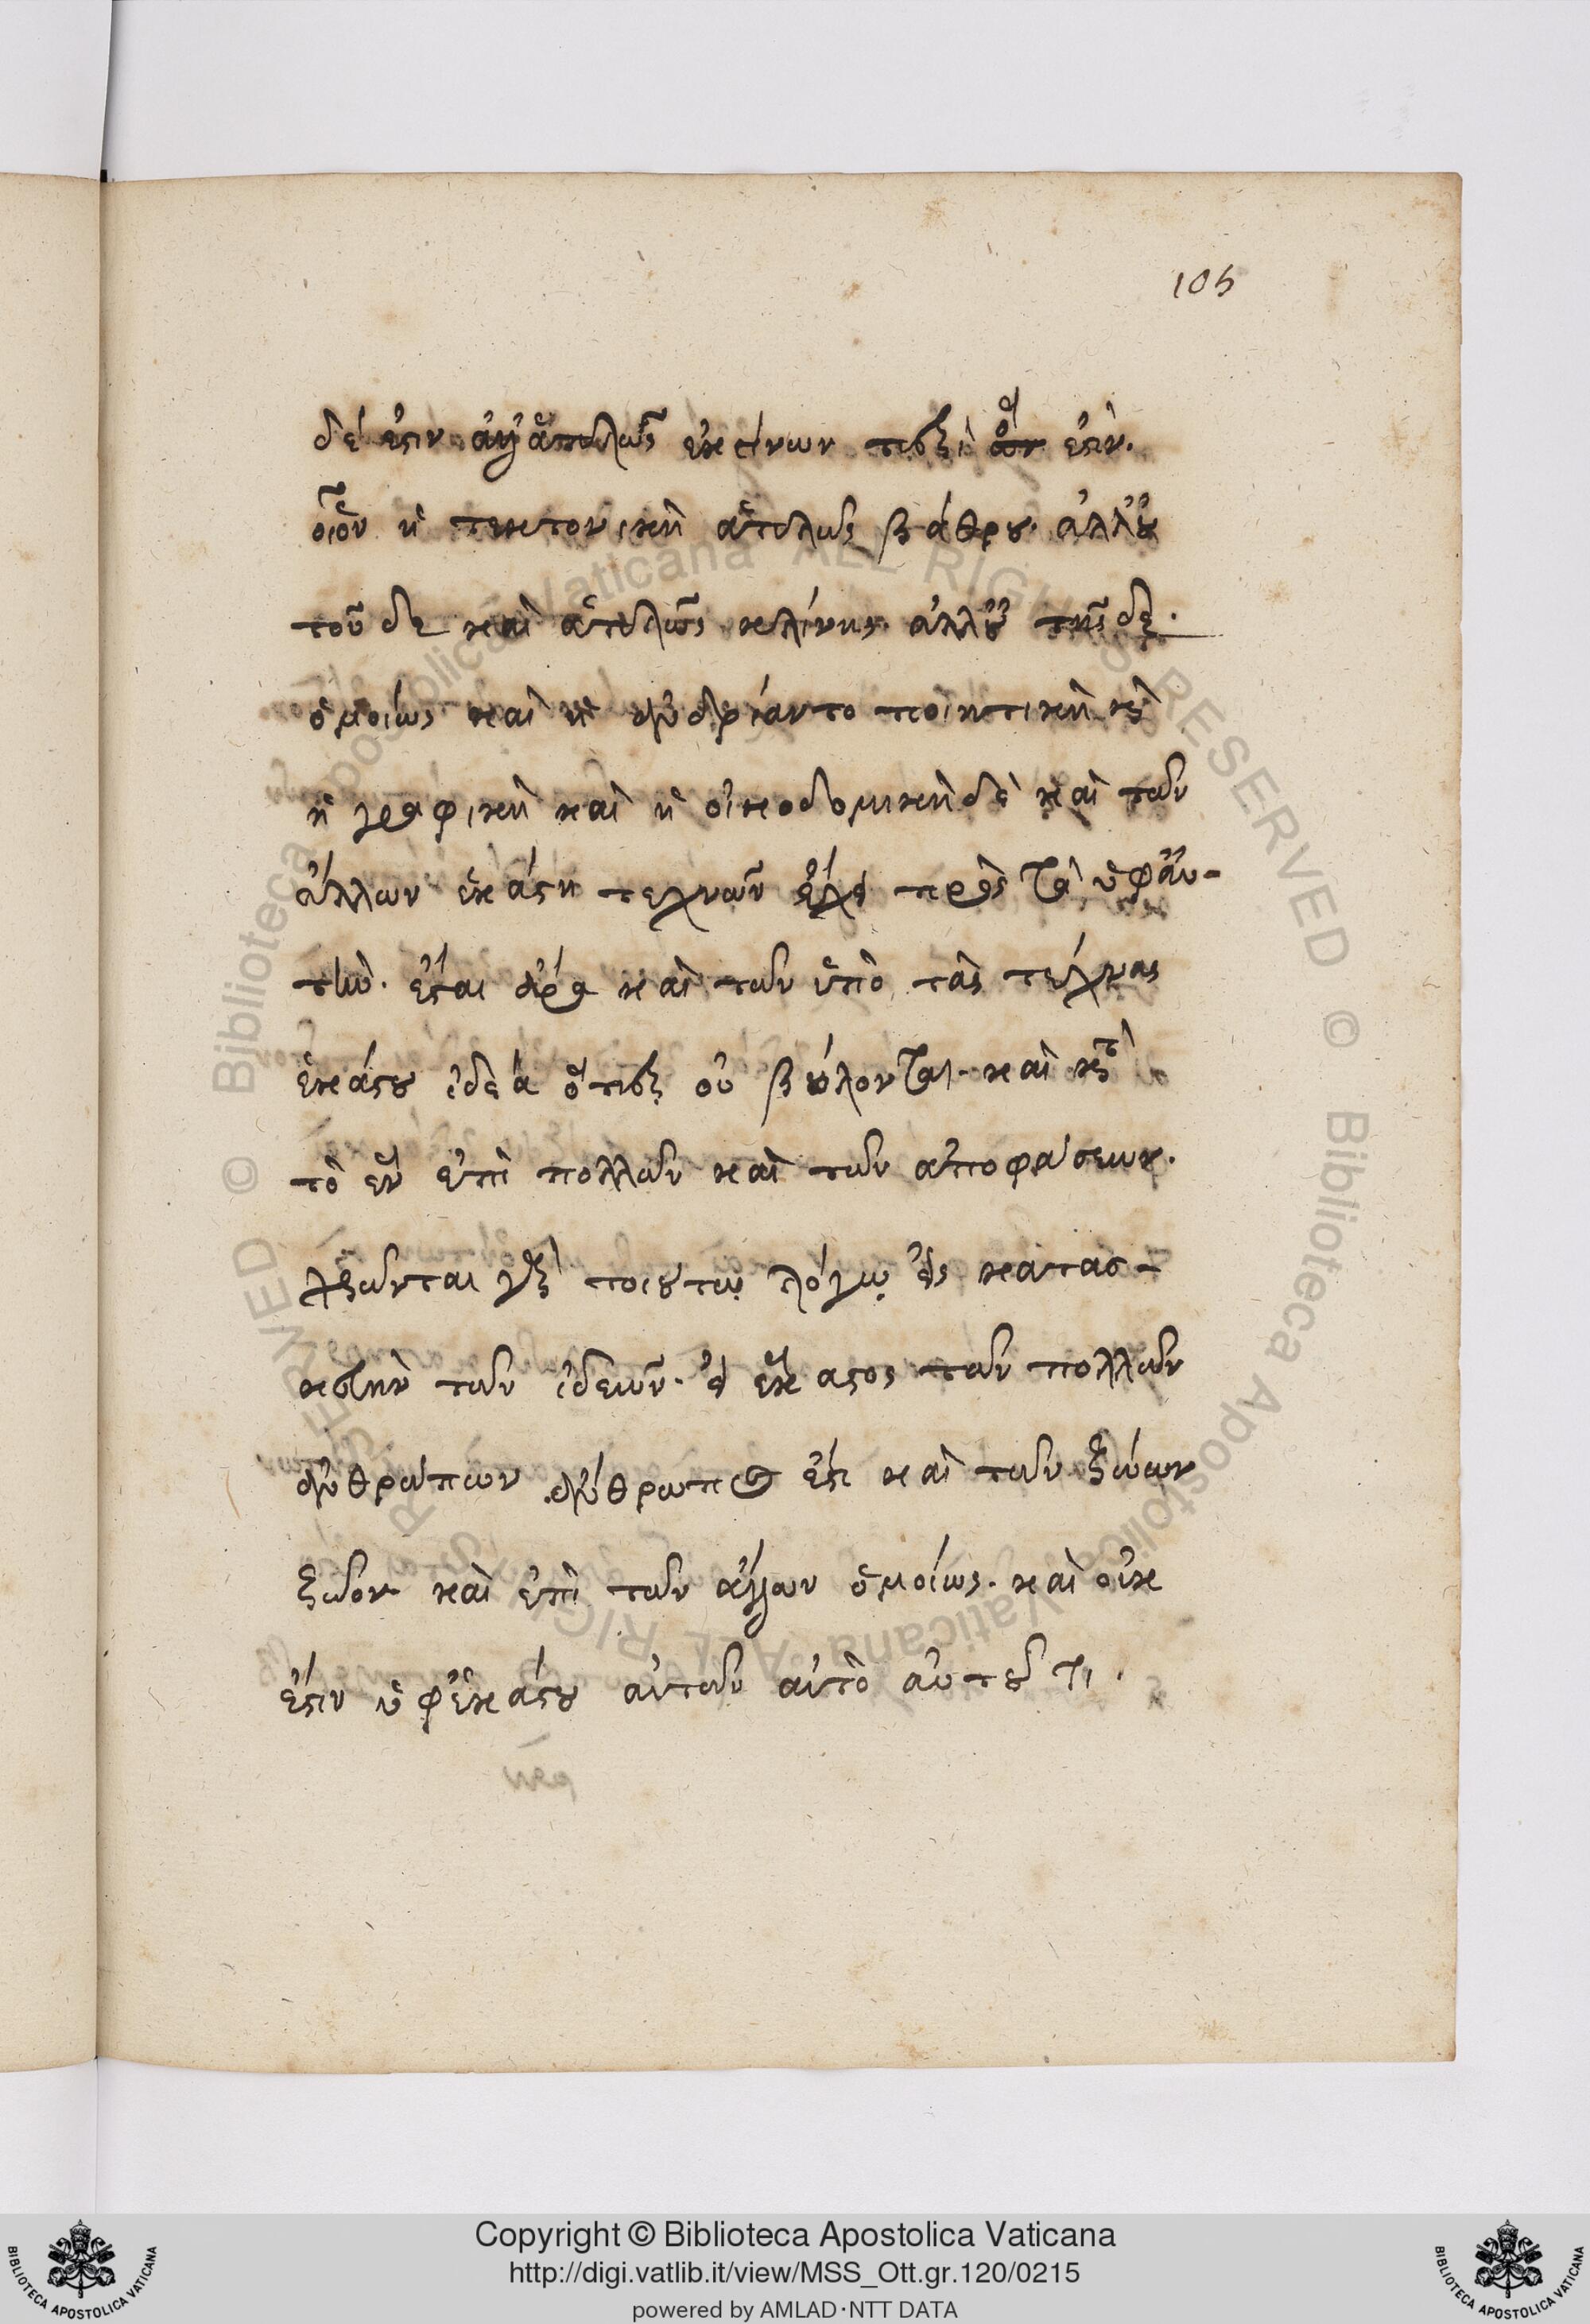 105
δέ ἐστιν ἀγαθὰ ἁπλῶς ἐκείνων περὶ ὅ ἐστιν.
οἷον ἡ τεκτονικὴ ἁπλῶς βάθρου. ἀλλ' οὐ
τοῦδε καὶ ἁπλῶς κλίνης. ἀλλ' οὐ τῆσδε.
ὁμοίως καὶ ἡ ἀνδριάντο ποιητικὴ καὶ
ἡ γραφικὴ καὶ ἡ οἰκοδομικὴ δὲ καὶ τῶν
ἄλλων ἑκάστη τεχνῶν ἔχει πρὸς τὰ ὑφ' αὑ-
τήν. ἔσται ἄρα καὶ τῶν ὑπὸ τὰς τέχνας
ἑκάστου ἰδέα ὅπερ οὐ βούλονται. καὶ κατὰ
τὸ ἓν ἐπὶ πολλῶν καὶ τῶν ἀποφάσεων.
χρῶνται καὶ τοιούτῳ λόγῳ εἰς κατασ-
κευὴν τῶν ἰδεῶν. εἰ ἕκαστος τῶν πολλῶν
ἀνθρώπων ἄνθρωπός ἐστι καὶ τῶν ζώων
ζῶον καὶ ἐπὶ τῶν ἄλλων ὁμοίως. καὶ οὐκ
ἔστιν ὑφ' ἑκάστου αὐτῶν αὐτὸ αὑτοῦ τι.
Copyright © Biblioteca Apostolica Vaticana
http://digi.vatlib.it/view/MSS_Ott.gr.120/0215
powered by AMLAD·NTT DATA
BIBLIOTECA APOSTOLICA VATICANA
BIBLIOTECA APOSTOLICA VATICANA
© Biblioteca Apostolica Vaticana ALL RIGHTS RESERVED
© Biblioteca Apostolica Vaticana ALL RIGHTS RESERVED